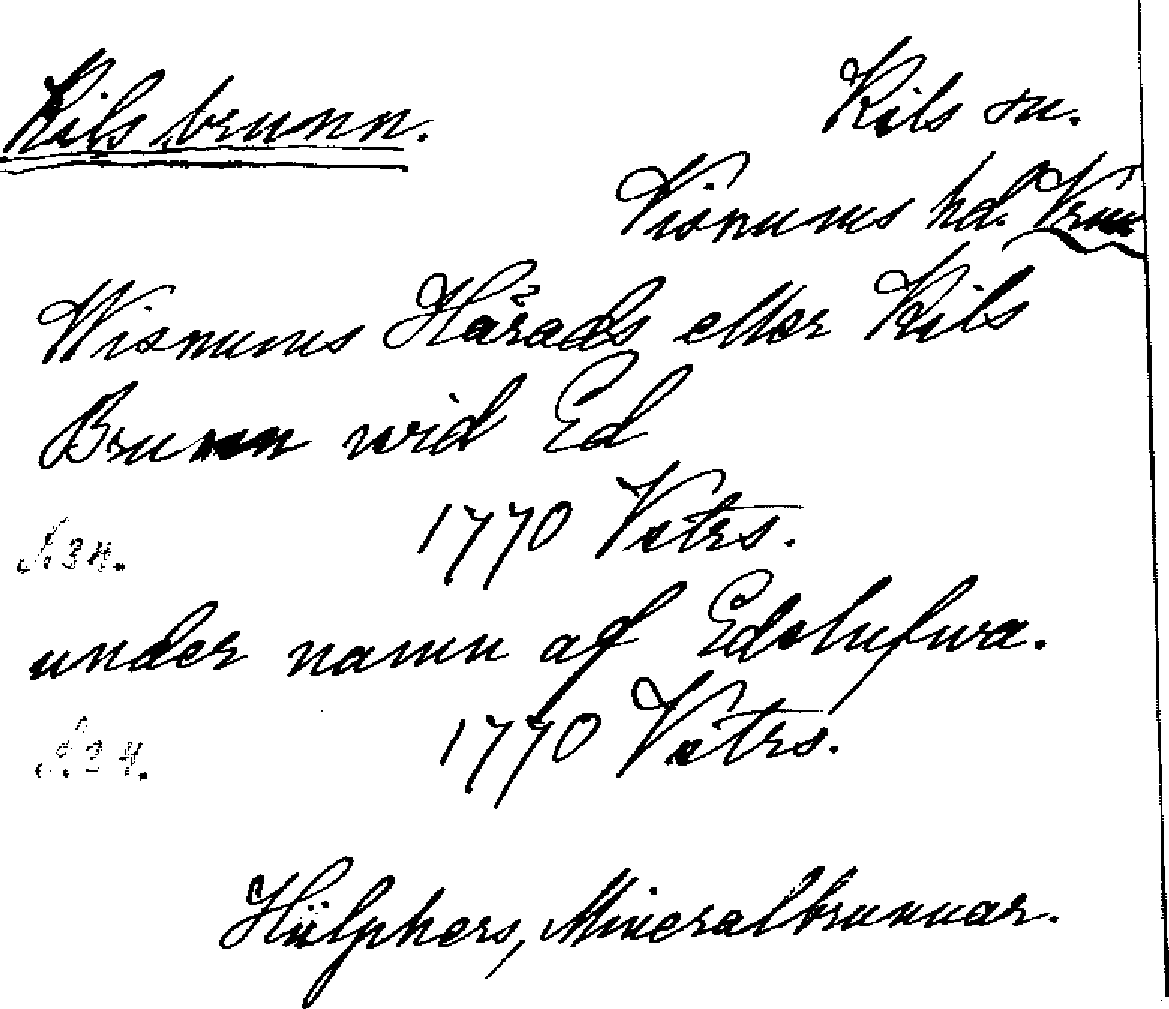 Kils brunn. Kils sn.
Visnums hd. Vrml
Wisnums Härads eller Kils
Brunn wid Ed
1770 Vetrs.
S. 34.
under namn af Edslufwa.
1770 Vetrs.
S. 34.
Hülphers, Mineralbrunnar.